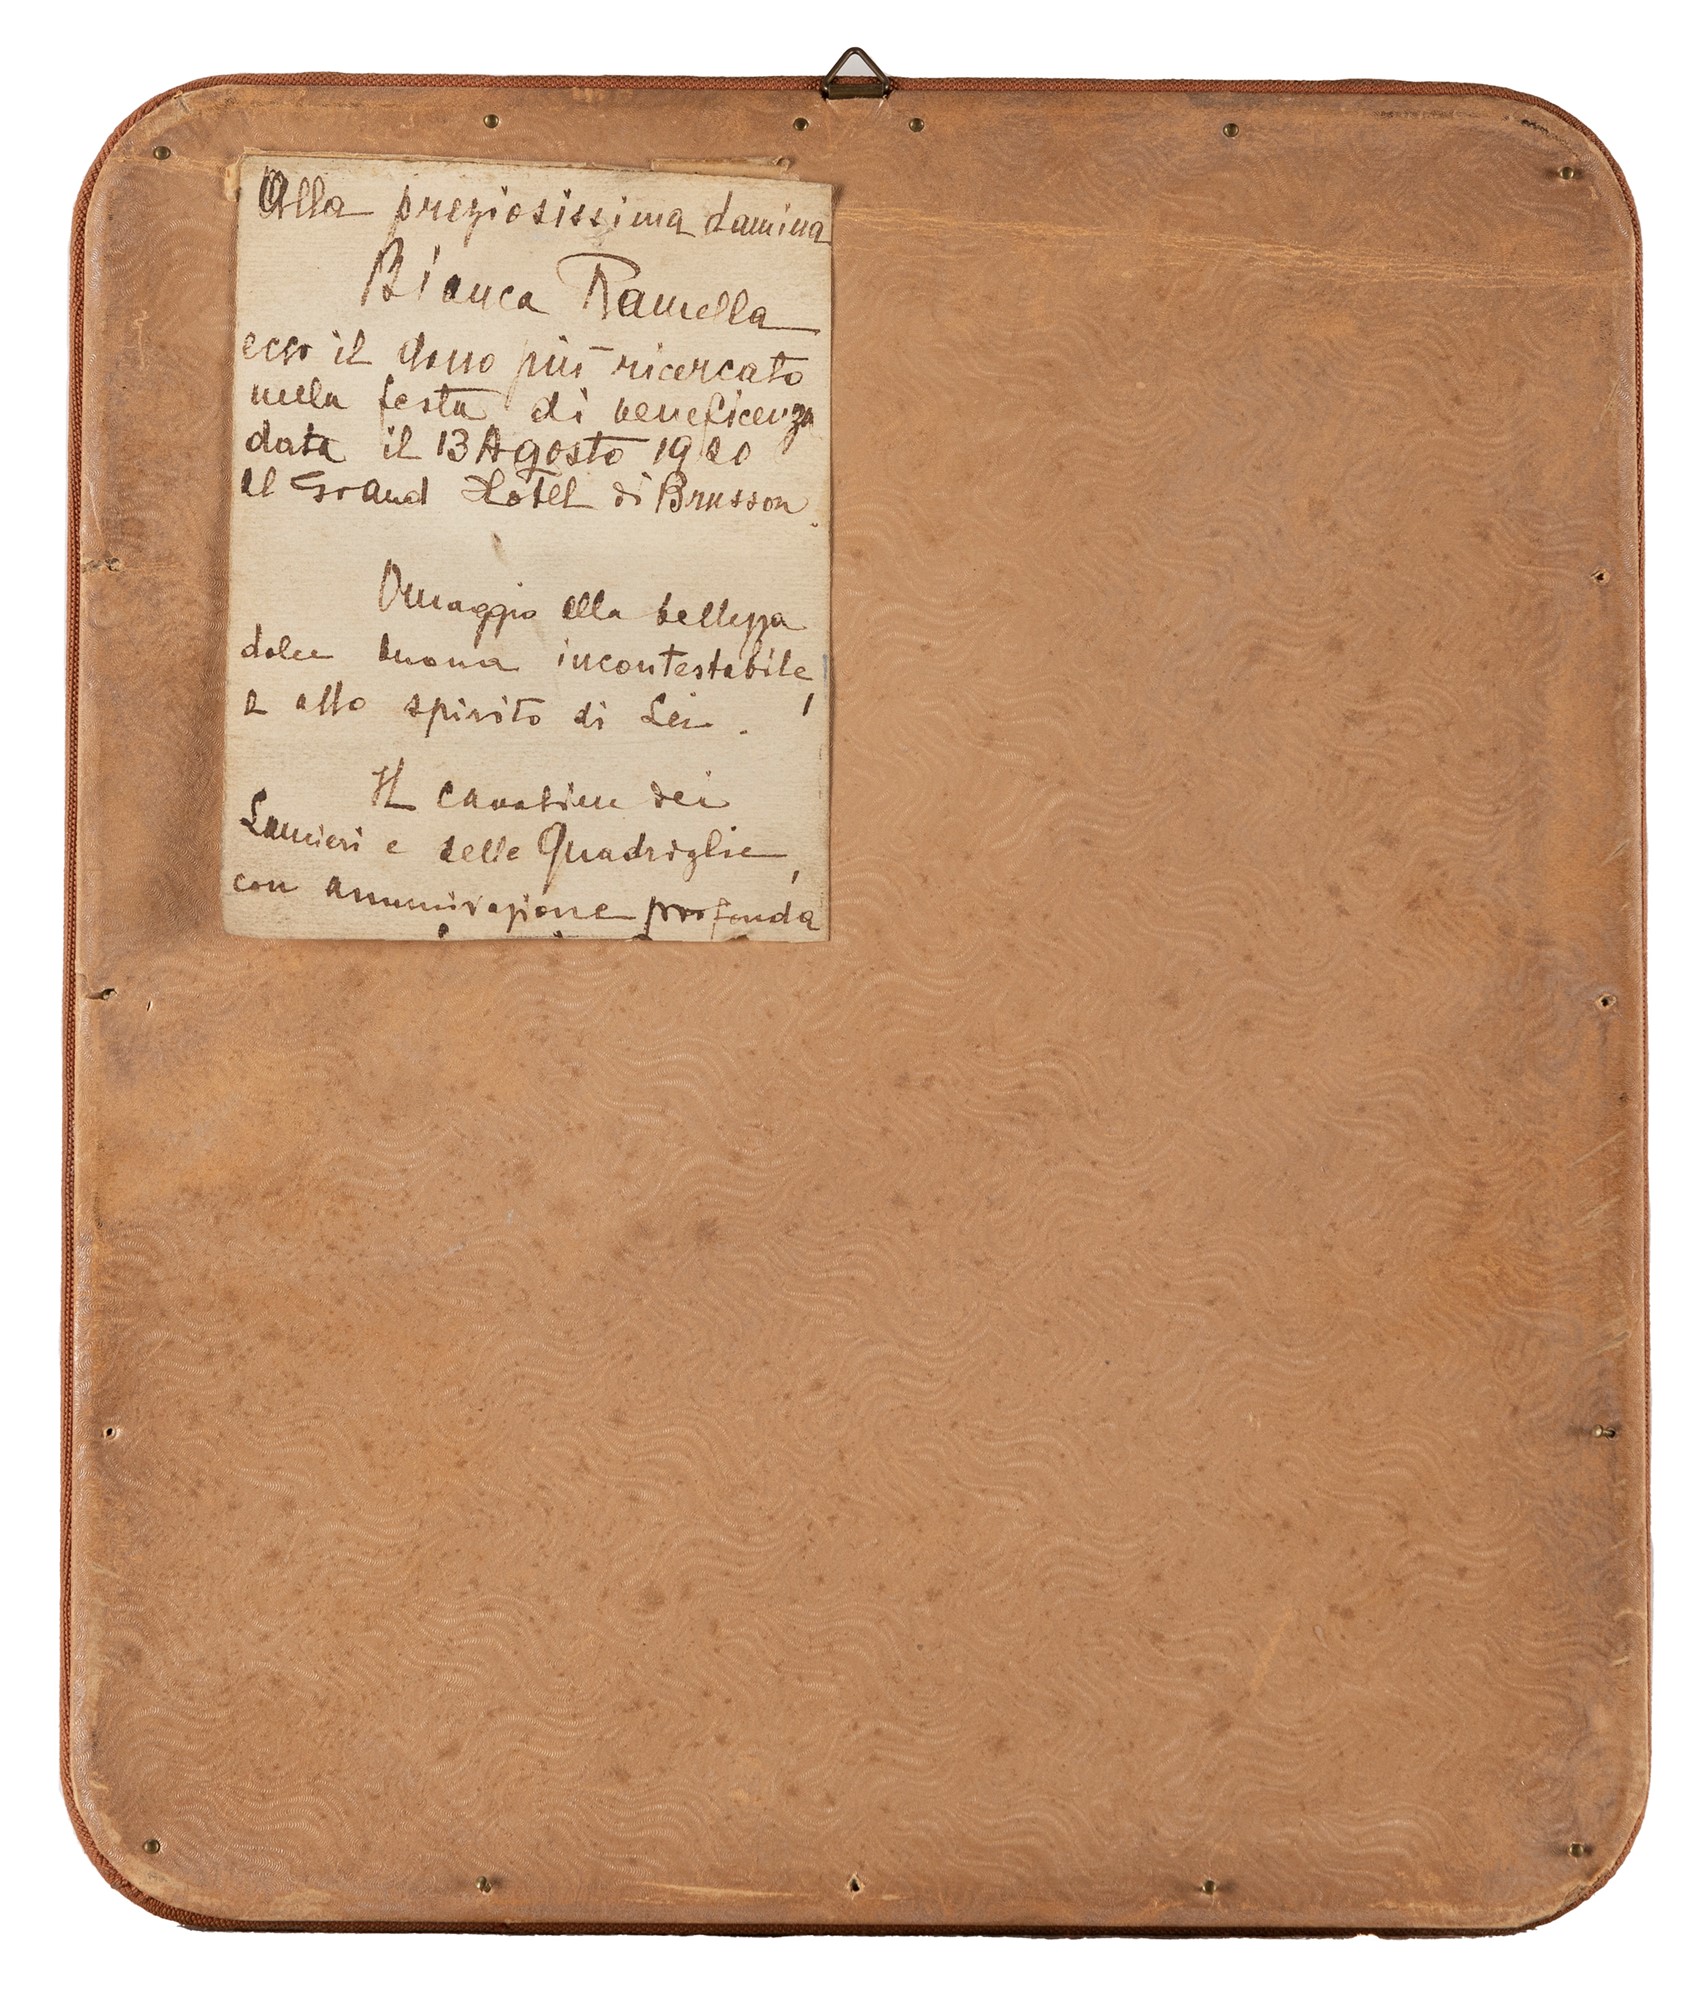 Alla preziosissima damina
Bianca Ramella
ecco il dono più ricercato
nella festa di beneficenza
data il 13 Agosto 1920
al Grand Hotel di Brusson.
Omaggio alla bellezza
dolce buona incontestabile,
e allo spirito di Lei.
Il cavaliere dei
Lancieri e delle Quadriglie,
con ammirazione profonda